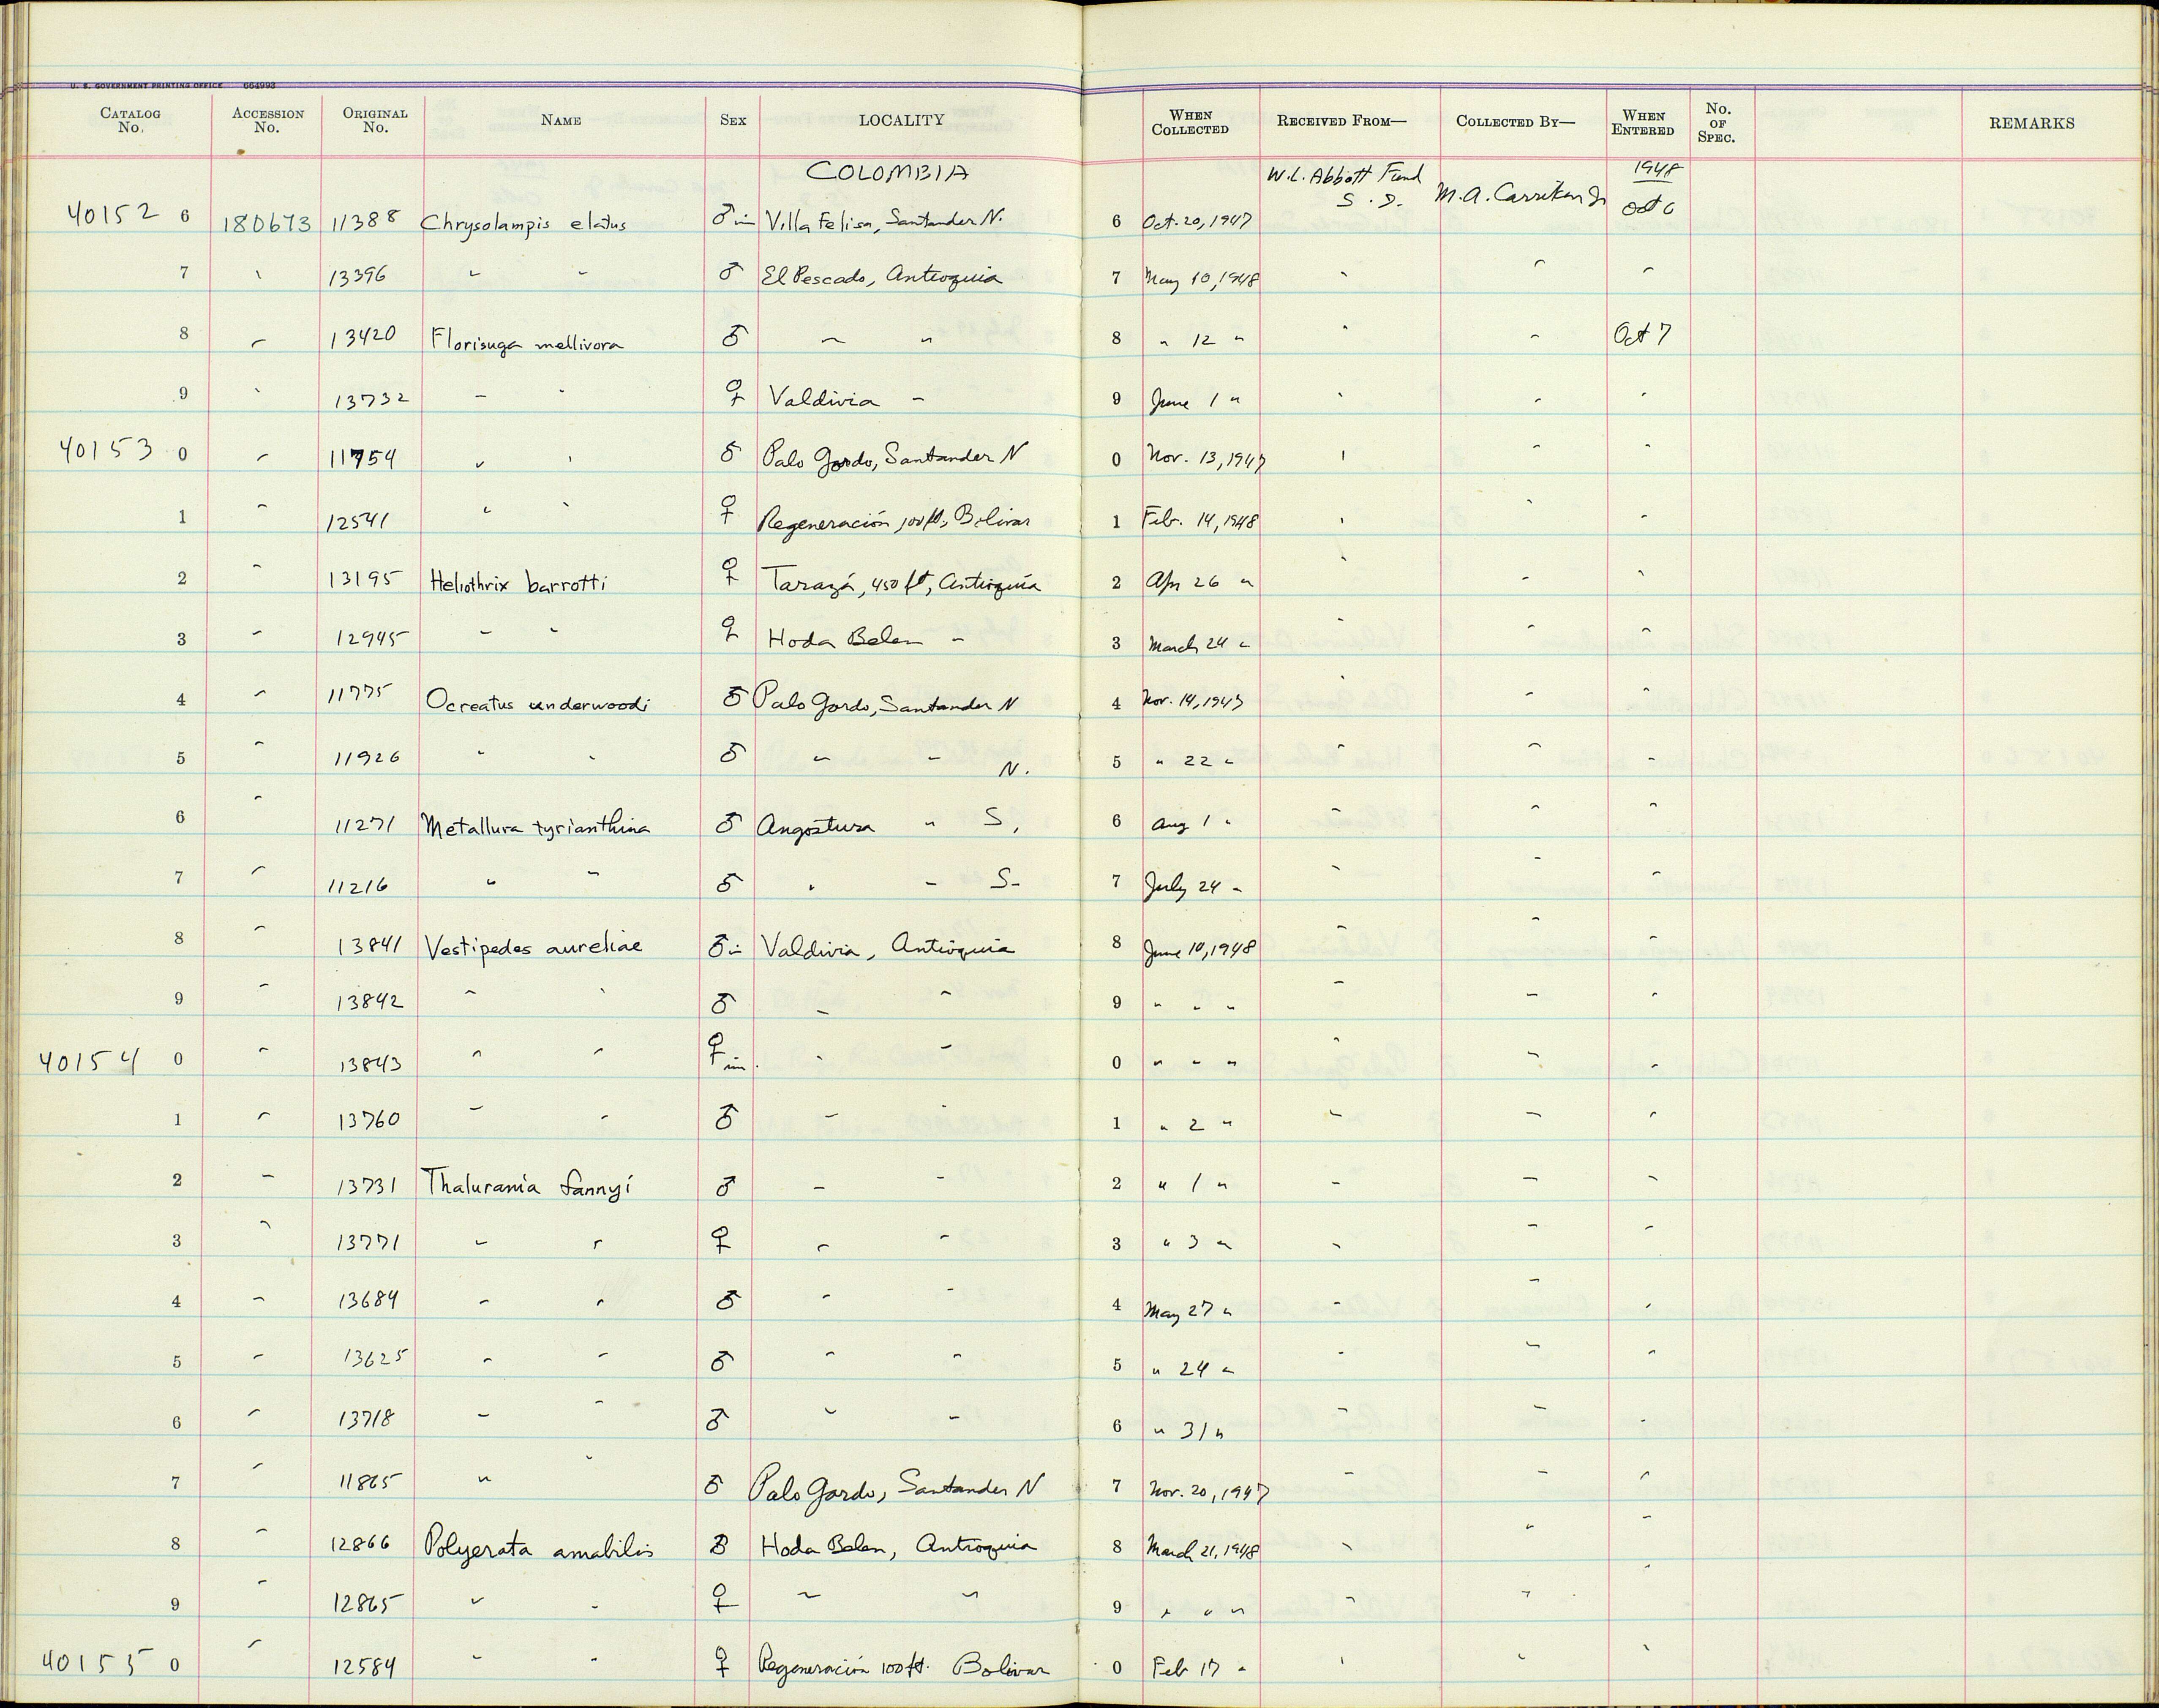 U. S. GOVERNMENT PRINTING OFFICE 664993
CATALOG No. ACCESSION No. ORIGINAL No. NAME SEX LOCALITY WHEN COLLECTED RECEIVED FROM— COLLECTED BY— WHEN ENTERED No. OF SPEC. REMARKS
COLOMBIA W.L. Abbott Fund 1948
40152 6 180673 11388 Chrysolampis elatus ♂ im Villa Felisa, Santander N. 6 Oct. 20, 1947 S. D. M.A. Carriker Jr Oct 6
7 " 13396 " " ♂ El Pescado, Antioquia 7 May 10, 1948 " " "
8 " 13420 Florisuga mellivora ♂ " " 8 " 12 " " " Oct 7
9 " 13732 " " ♀ Valdivia " 9 June 1 " " " "
40153 0 " 11754 " " ♂ Palo Gordo, Santander N 0 Nov. 13, 1947 " " "
1 " 12541 " " ♀ Regeneración 100 ft, Bolivar 1 Feb. 14, 1948 " " "
2 " 13195 Heliothrix barrotti ♀ Tarazá, 450 ft, Antioquia 2 Apr 26 " " " "
3 " 12945 " " ♀ Hoda Belen " 3 March 24 " " " "
4 " 11775 Ocreatus underwoodi ♂ Palo Gordo, Santander N 4 Nov. 14, 1947 " " "
5 " 11926 " " ♂ " " N. 5 " 22 " " " "
6 " 11271 Metallura tyrianthina ♂ Angostura " S, 6 Aug 1 " " " "
7 " 11216 " " ♂ " " S- 7 July 24 " " " "
8 " 13841 Vestipedes aureliae ♂ im Valdivia, Antioquia 8 June 10, 1948 " " "
9 " 13842 " " ♂ " " 9 " " " " " "
40154 0 " 13843 " " ♀ im. " " 0 " " " " " "
1 " 13760 " " ♂ " " 1 " 2 " " " "
2 " 13731 Thalurania fannyi ♂ " " 2 " 1 " " " "
3 " 13771 " " ♀ " " 3 " 3 " " " "
4 " 13684 " " ♂ " " 4 May 27 " " " "
5 " 13625 " " ♂ " " 5 " 24 " " " "
6 " 13718 " " ♂ " " 6 " 31 " " " "
7 " 11865 " " ♂ Palo Gordo, Santander N 7 Nov. 20, 1947 " " "
8 " 12866 Polyerata amabilis ♂ Hoda Belen, Antioquia 8 March 21, 1948 " " "
9 " 12865 " " ♀ " " 9 " " " " " "
40155 0 " 12584 " " ♀ Regeneración 100 ft. Bolivar 0 Feb 17 " " " "